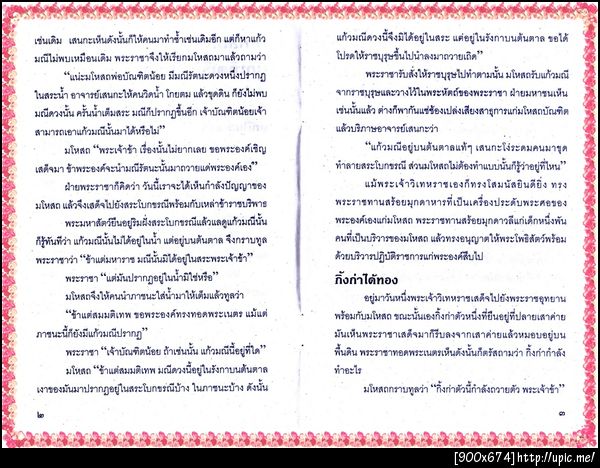 เช่นเดิม เสนกะเห็นดังนั้นก็ให้คนมาทำซ้ำเช่นเดิมอีก แต่ก็หาแก้ว
มณีไม่พบเหมือนเดิม พระราชาจึงให้เรียกมโหสถมาแล้วถามว่า
"แน่ะมโหสถพ่อบัณฑิตน้อย มีมณีรัตนะดวงหนึ่งปรากฏ
ในสระน้ำ อาจารย์เสนกะให้คนวิดน้ำ โกยตม แล้วขุดดิน ก็ยังไม่พบ
มณีดวงนั้น ครั้นน้ำเต็มสระ มณีก็ปรากฏขึ้นอีก เจ้าบัณฑิตน้อยเจ้า
สามารถเอาแก้วมณีนั้นมาได้หรือไม่"
มโหสถ "พระเจ้าข้า เรื่องนั้นไม่ยากเลย ขอพระองค์เชิญ
เสด็จมา ข้าพระองค์จะนำมณีรัตนะนั้นมาถวายแด่พระองค์เอง"
ฝ่ายพระราชาก็คิดว่า วันนี้เราจะได้เห็นกำลังปัญญาของ
มโหสถ แล้วจึงเสด็จไปยังสระโบกขรณีพร้อมกับเหล่าข้าราชบริพาร
พระมหาสัตว์ยืนอยู่ริมฝั่งสระโบกขรณีแล้วแลดูแก้วมณีนั้น
ก็รู้ทันทีว่า แก้วมณีนั้นไม่ได้อยู่ในน้ำ แต่อยู่บนต้นตาล จึงกราบทูล
พระราชาว่า "ข้าแต่มหาราช มณีนั้นมิได้อยู่ในสระพระเจ้าข้า"
พระราชา "แต่มันปรากฏอยู่ในน้ำมิใช่หรือ"
มโหสถจึงให้คนนำภาชนะใส่น้ำมาให้เต็มแล้วทูลว่า
"ข้าแต่สมมติเทพ ขอพระองค์ทรงทอดพระเนตร แม้แต่
ภาชนะนี้ก็ยังมีแก้วมณีปรากฏ"
พระราชา "เจ้าบัณฑิตน้อย ถ้าเช่นนั้น แก้วมณีนี้อยู่ที่ใด"
มโหสถ "ข้าแต่สมมติเทพ มณีดวงนี้อยู่ในรังกาบนต้นตาล
เงาของมันมาปรากฏอยู่ในสระโบกขรณีบ้าง ในภาชนะบ้าง ดังนั้น
๒
แก้วมณีดวงนี้จึงมิได้อยู่ในสระ แต่อยู่ในรังกาบนต้นตาล ขอได้
โปรดให้ราชบุรุษขึ้นไปนำลงมาถวายเถิด"
พระราชารับสั่งให้ราชบุรุษไปทำตามนั้น มโหสถรับแก้วมณี
จากราชบุรุษและวางไว้ในพระหัตถ์ของพระราชา ฝ่ายมหาชนเห็น
เช่นนั้นแล้ว ต่างก็พากันแซ่ซ้องเปล่งเสียงสาธุการแก่มโหสถบัณฑิต
แล้วบริภาษอาจารย์เสนกะว่า
"แก้วมณีอยู่บนต้นตาลแท้ๆ เสนกะโง่ระดมคนมาขุด
ทำลายสระโบกขรณี ส่วนมโหสถไม่ต้องทำแบบนั้นก็รู้ว่าอยู่ที่ไหน"
แม้พระเจ้าวิเทหราชเองก็ทรงโสมนัสยินดียิ่ง ทรง
พระราชทานสร้อยมุกดาหารที่เป็นเครื่องประดับพระศอของ
พระองค์เองแก่มโหสถ พระราชทานสร้อยมุกดาวลีแก่เด็กหนึ่งพัน
คนที่เป็นบริวารของมโหสถ แล้วทรงอนุญาตให้พระโพธิสัตว์พร้อม
ด้วยบริวารปฏิบัติราชการแก่พระองค์สืบไป
กิ้งก่าได้ทอง
อยู่มาวันหนึ่งพระเจ้าวิเทหราชเสด็จไปยังพระราชอุทยาน
พร้อมกับมโหสถ ขณะนั้นเองกิ้งก่าตัวหนึ่งที่ยืนอยู่ที่ปลายเสาค่าย
มันเห็นพระราชาเสด็จมาก็รีบลงจากเสาค่ายแล้วหมอบอยู่บน
พื้นดิน พระราชาทอดพระเนตรเห็นดังนั้นก็ตรัสถามว่า กิ้งก่ากำลัง
ทำอะไร
มโหสถกราบทูลว่า "กิ้งก่าตัวนี้กำลังถวายตัว พระเจ้าข้า"
๓
[900x674]http://upic.me/